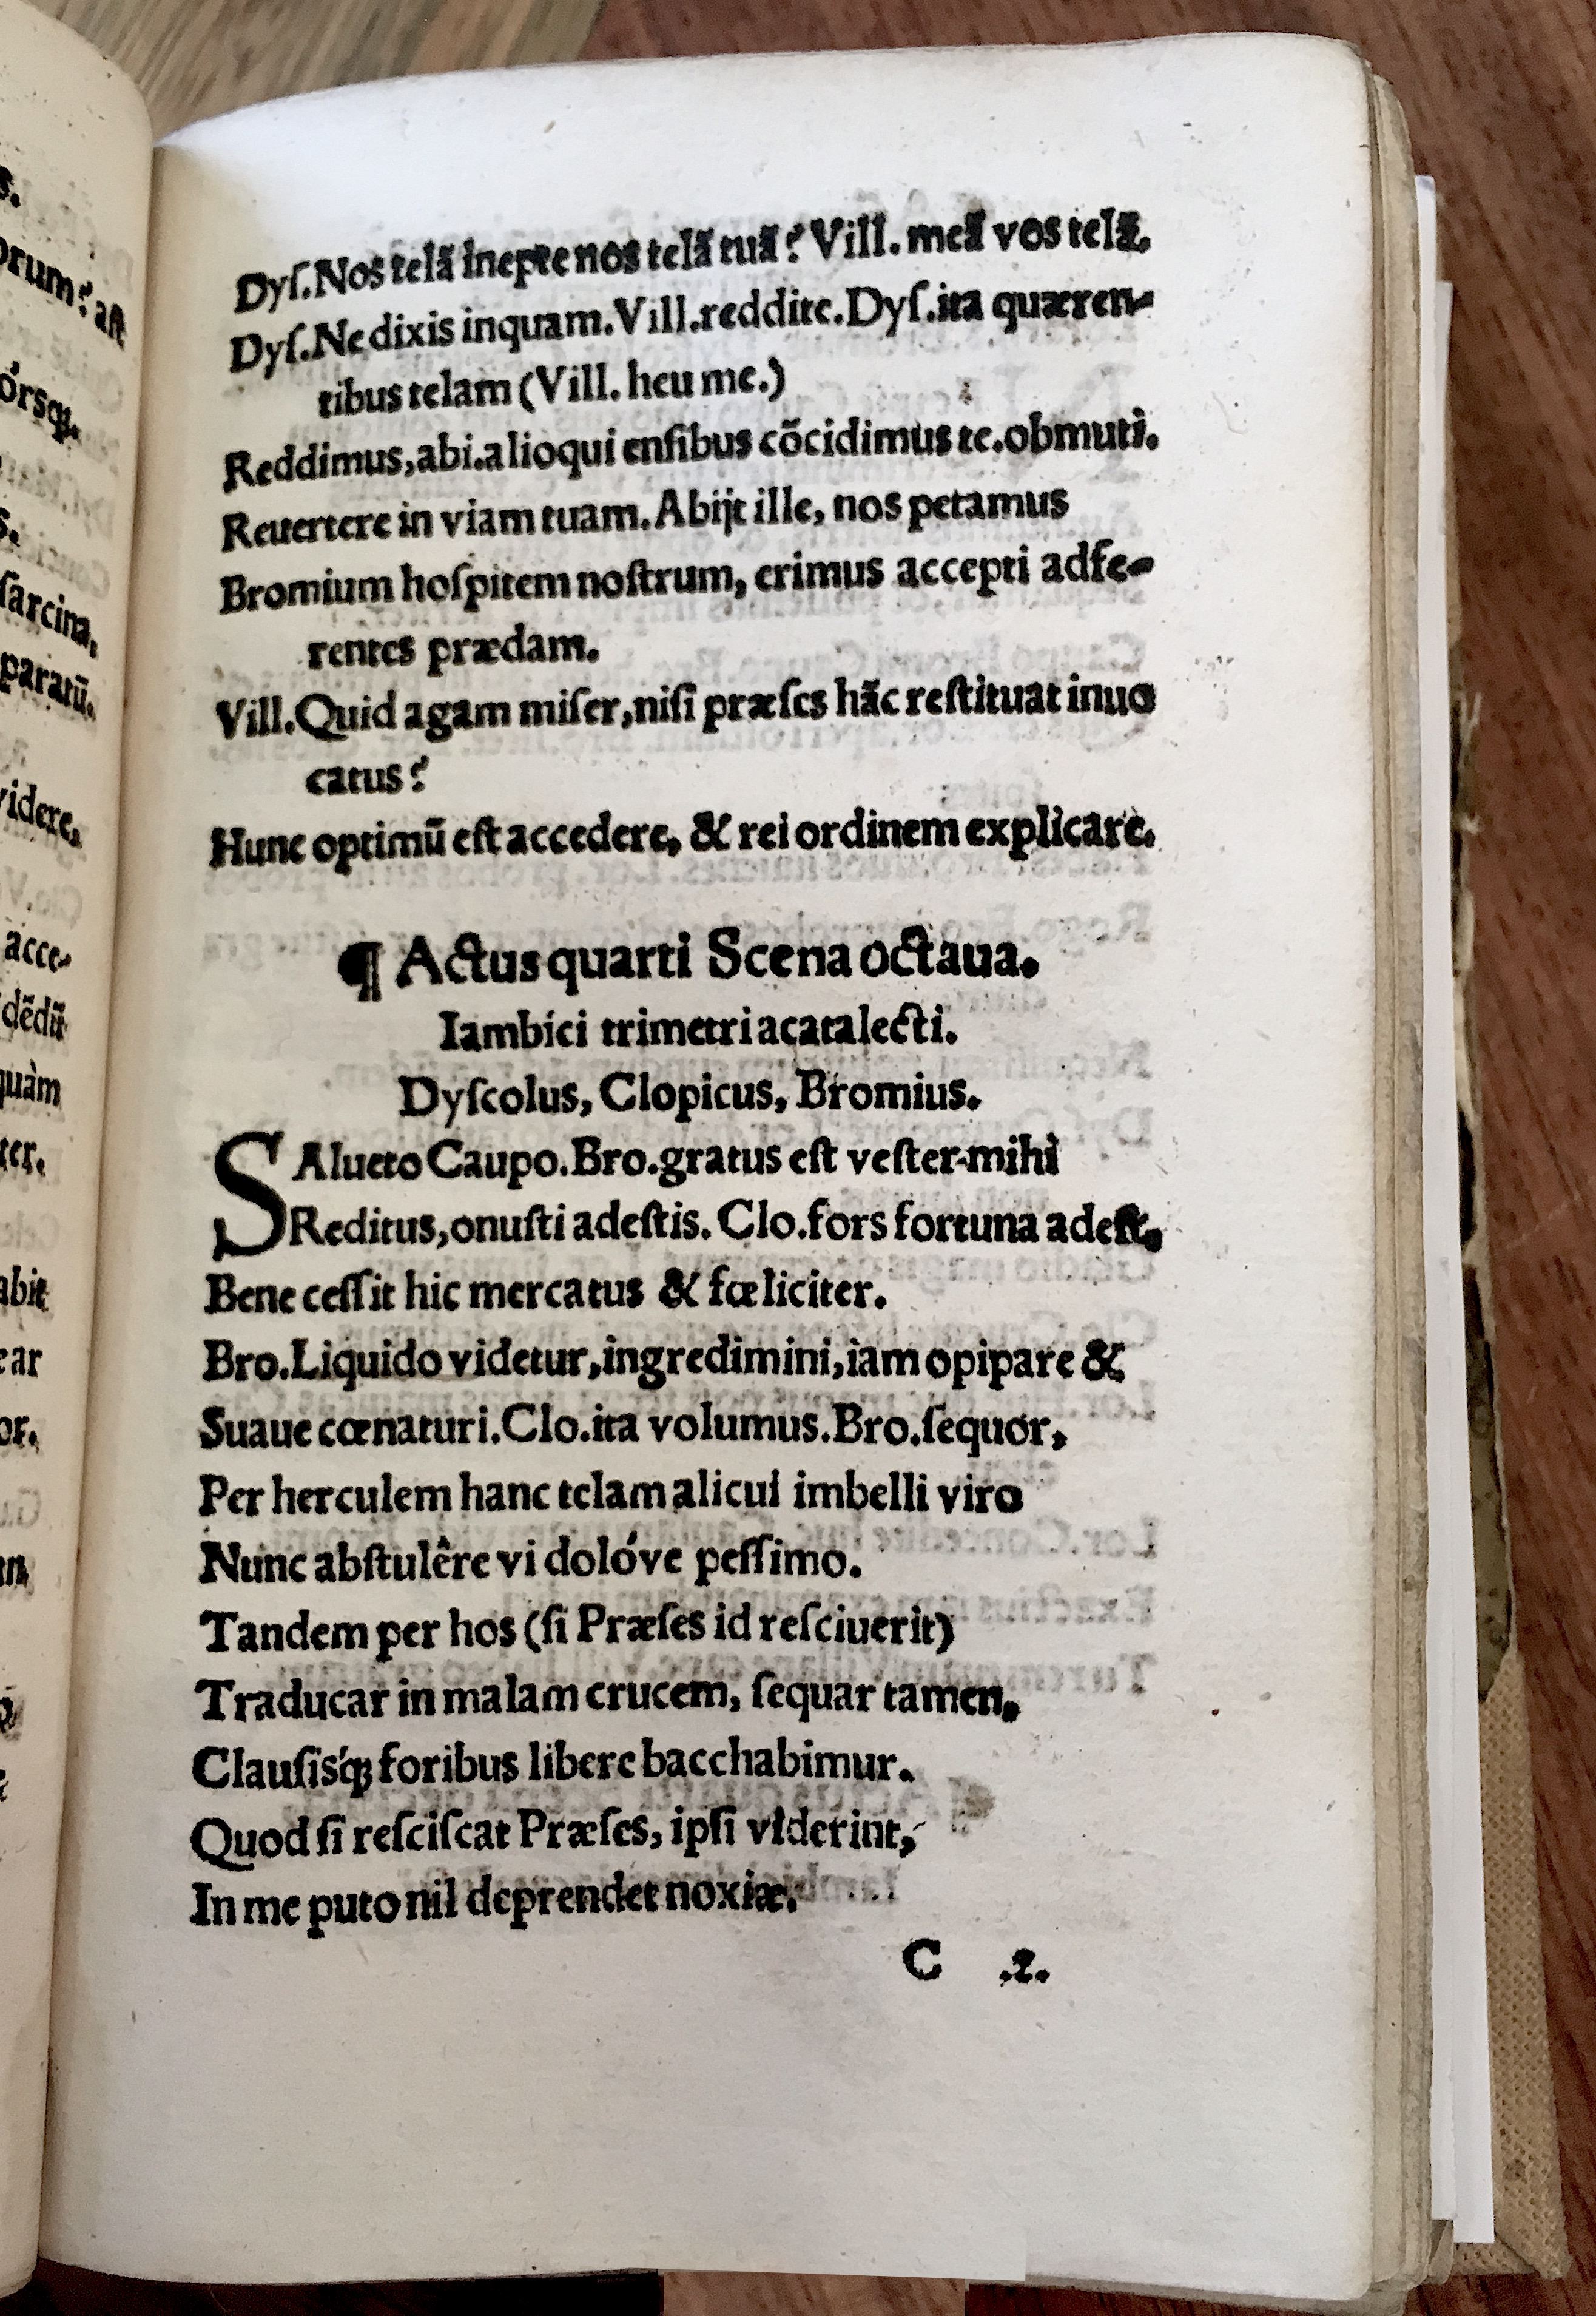 s.
orum? ast
órsq;.
s.
sarcina,
paratū.
videre,
acce-
dēdū
quàm
ter.
abit
car
or.
Dyſ.Nos telã inepte nos telã tuã? Vill. meã vos telã.
Dyſ.Ne dixis inquam.Vill.reddite.Dyſ.ita quæren-
tibus telam (Vill. heu me.)
Reddimus,abi.alioqui enſibus cõcidimus te.obmuti.
Reuertere in viam tuam.Abijt ille, nos petamus
Bromium hoſpitem noſtrum, erimus accepti adfe-
rentes prædam.
Vill.Quid agam miſer,niſi præſes hãc reſtituat inuo
catus?
Hunc optimū eſt accedere, & rei ordinem explicare.
¶ Actus quarti Scena octaua.
Iambici trimetri acatalecti.
Dyſcolus, Clopicus, Bromius.
SAlueto Caupo.Bro.gratus eſt veſter mihi
Reditus,onuſti adeſtis. Clo.fors fortuna adeſt.
Bene ceſſit hic mercatus & fœliciter.
Bro.Liquido videtur,ingredimini,iam opipare &
Suaue cœnaturi.Clo.ita volumus.Bro.ſequor,
Per herculem hanc telam alicui imbelli viro
Nunc abſtulêre vi dolóve peſſimo.
Tandem per hos (ſi Præſes id reſciuerit)
Traducar in malam crucem, ſequar tamen.
Clauſisq́; foribus libere bacchabimur.
Quod ſi reſciſcat Præſes, ipſi viderint,
In me puto nil deprendet noxiæ.
C .2.